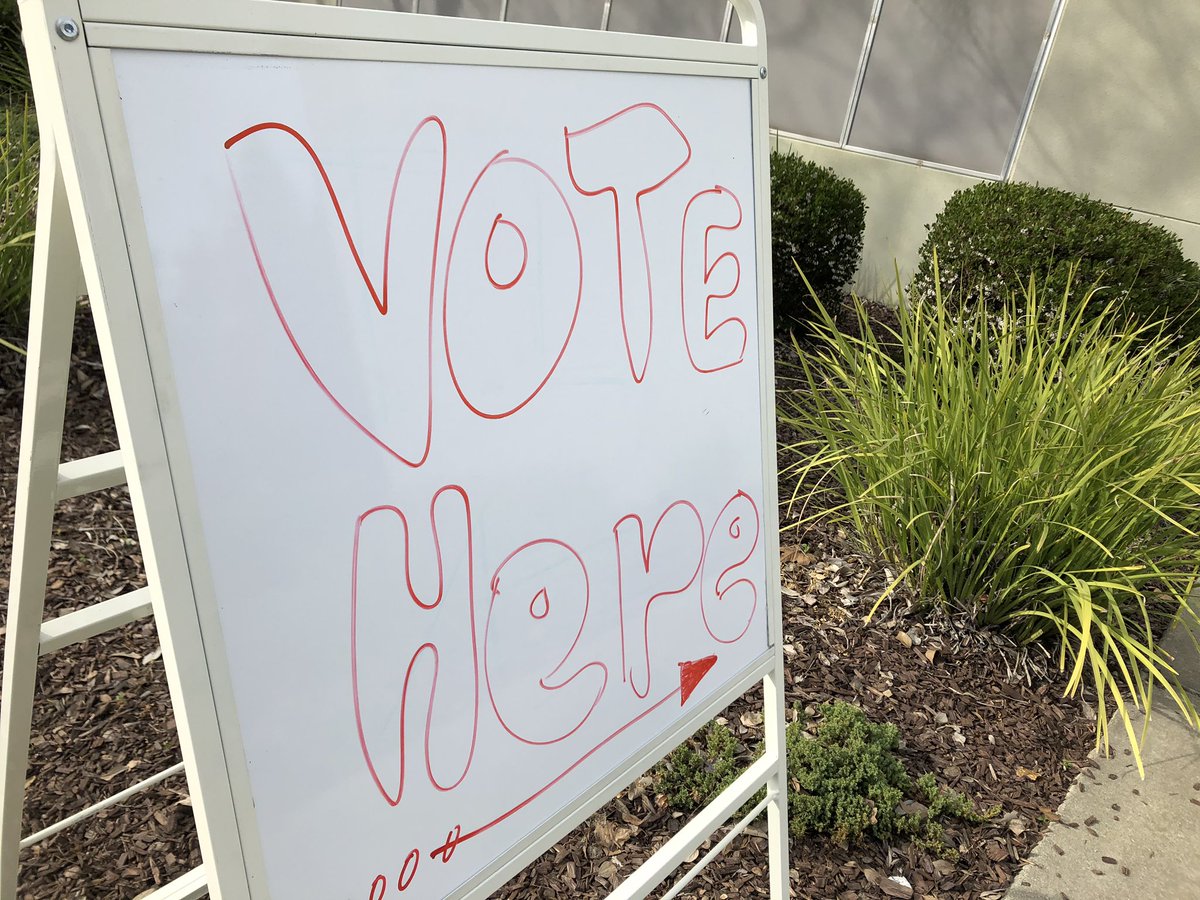 VOTE
Here